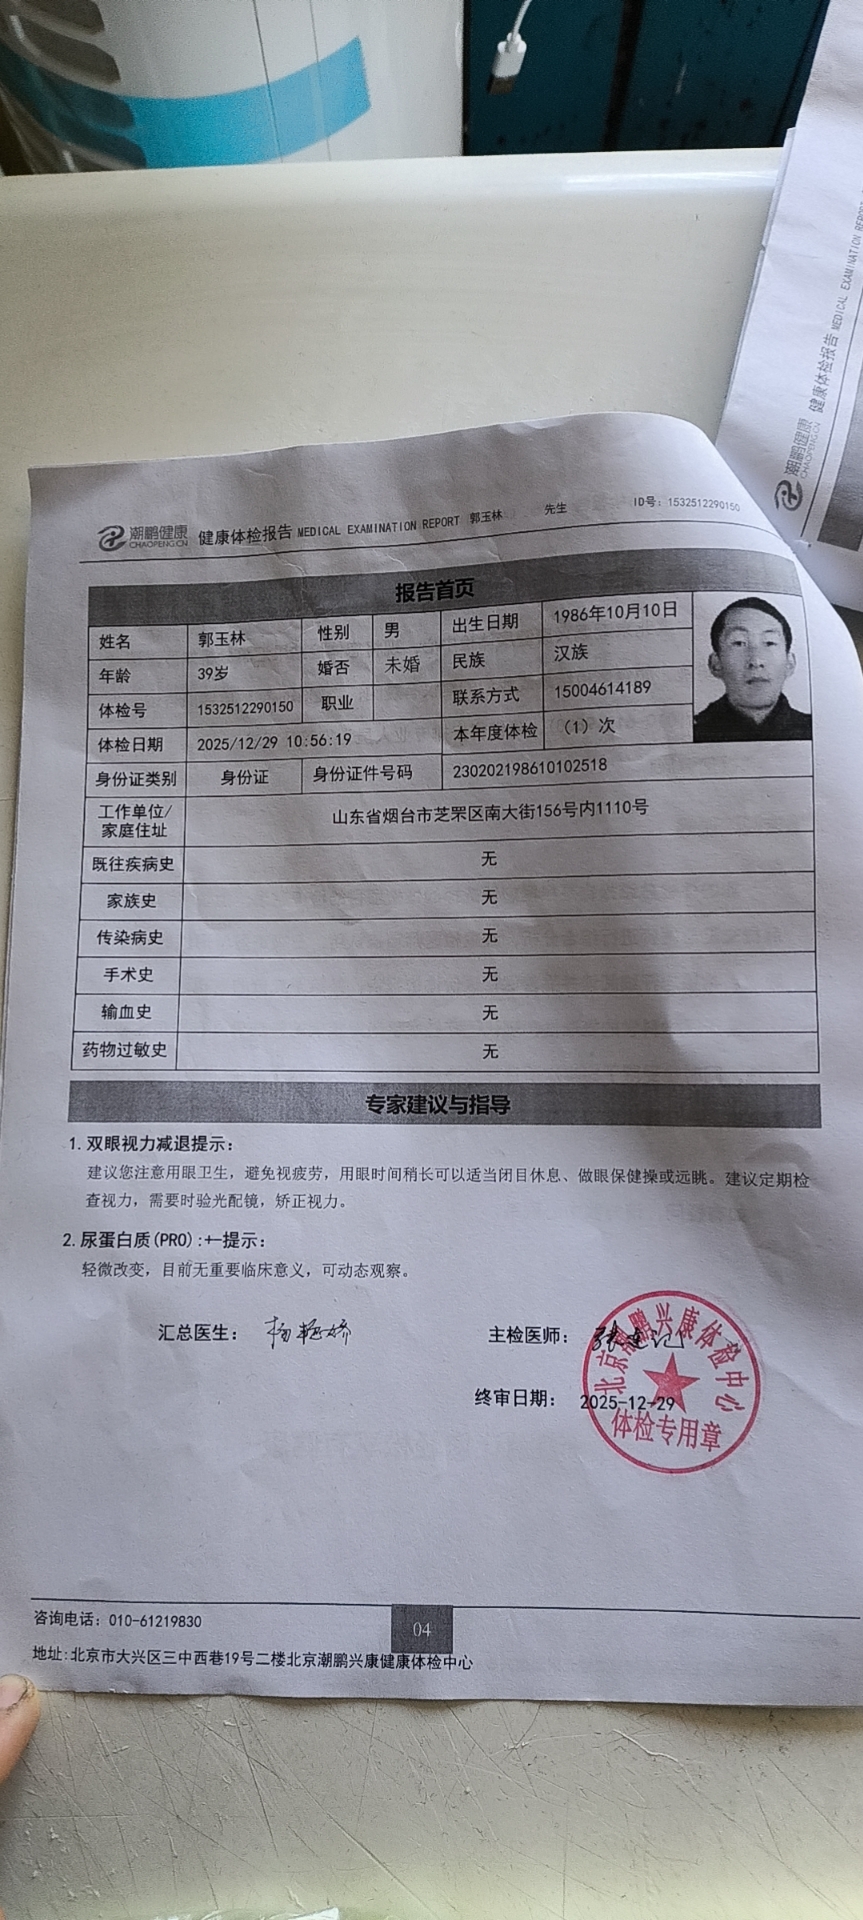 潮鹏健康 CHAOPENG.CN 健康体检报告 MEDICAL EXAMINATION REPORT 郭玉林 先生 ID号: 1532512290150
报告首页
姓名 郭玉林 性别 男 出生日期 1986年10月10日
年龄 39岁 婚否 未婚 民族 汉族
体检号 1532512290150 职业 联系方式 15004614189
体检日期 2025/12/29 10:56:19 本年度体检 (1)次
身份证类别 身份证 身份证件号码 230202198610102518
工作单位/家庭住址 山东省烟台市芝罘区南大街156号内1110号
既往疾病史 无
家族史 无
传染病史 无
手术史 无
输血史 无
药物过敏史 无
专家建议与指导
1. 双眼视力减退提示:
建议您注意用眼卫生，避免视疲劳，用眼时间稍长可以适当闭目休息、做眼保健操或远眺。建议定期检
查视力，需要时验光配镜，矫正视力。
2. 尿蛋白质(PRO):+-提示:
轻微改变，目前无重要临床意义，可动态观察。
汇总医生: 主检医师:
终审日期: 2025-12-29
北京潮鹏兴康体检中心
体检专用章
咨询电话: 010-61219830
04
地址:北京市大兴区三中西巷19号二楼北京潮鹏兴康健康体检中心
潮鹏健康 CHAOPENG.CN 健康体检报告 MEDICAL EXAMINATION REPORT